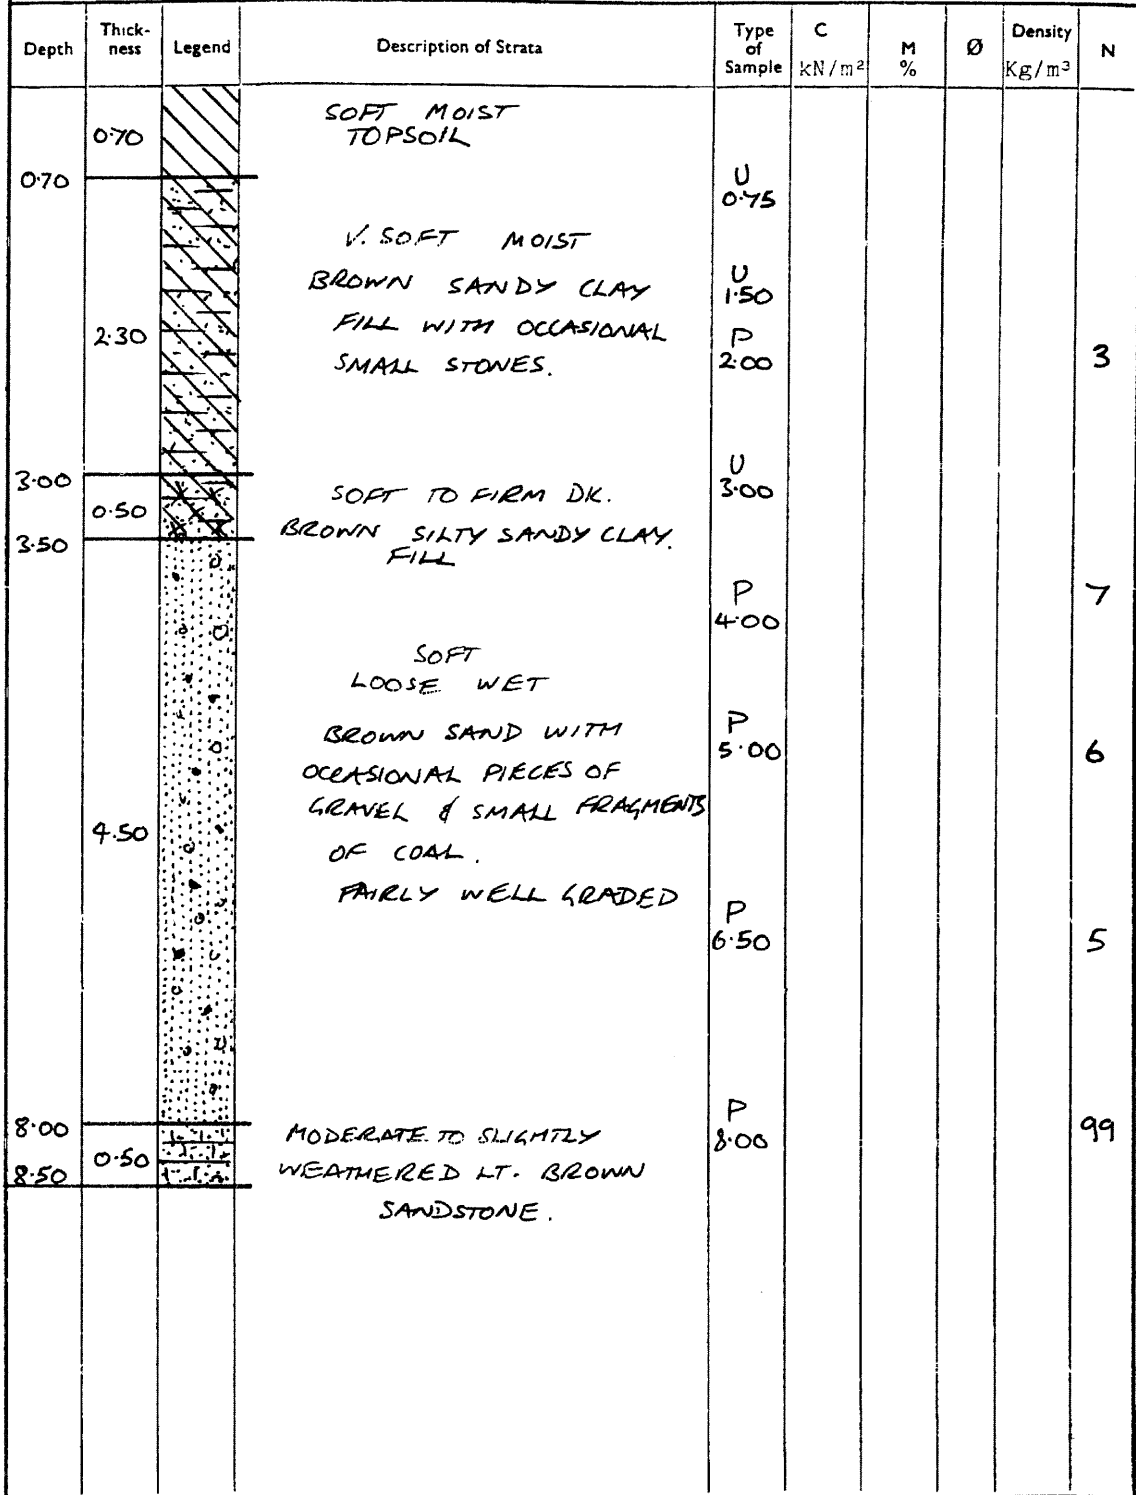 Depth
Thick-
ness
Legend
Description of Strata
Type
of
Sample
C
kN/m²
M
%
Ø
Density
Kg/m³
N
SOFT MOIST
TOPSOIL
0.70
0.70
U
0.75
V. SOFT MOIST
BROWN SANDY CLAY
FILL WITH OCCASIONAL
SMALL STONES.
2.30
U
1.50
P
2.00
3
3.00
U
3.00
SOFT TO FIRM DK.
BROWN SILTY SANDY CLAY.
FILL
0.50
3.50
P
4.00
7
SOFT
LOOSE WET
BROWN SAND WITH
OCCASIONAL PIECES OF
GRAVEL & SMALL FRAGMENTS
OF COAL.
FAIRLY WELL GRADED
4.50
P
5.00
6
P
6.50
5
8.00
P
8.00
99
MODERATE TO SLIGHTLY
WEATHERED LT. BROWN
SANDSTONE.
0.50
8.50